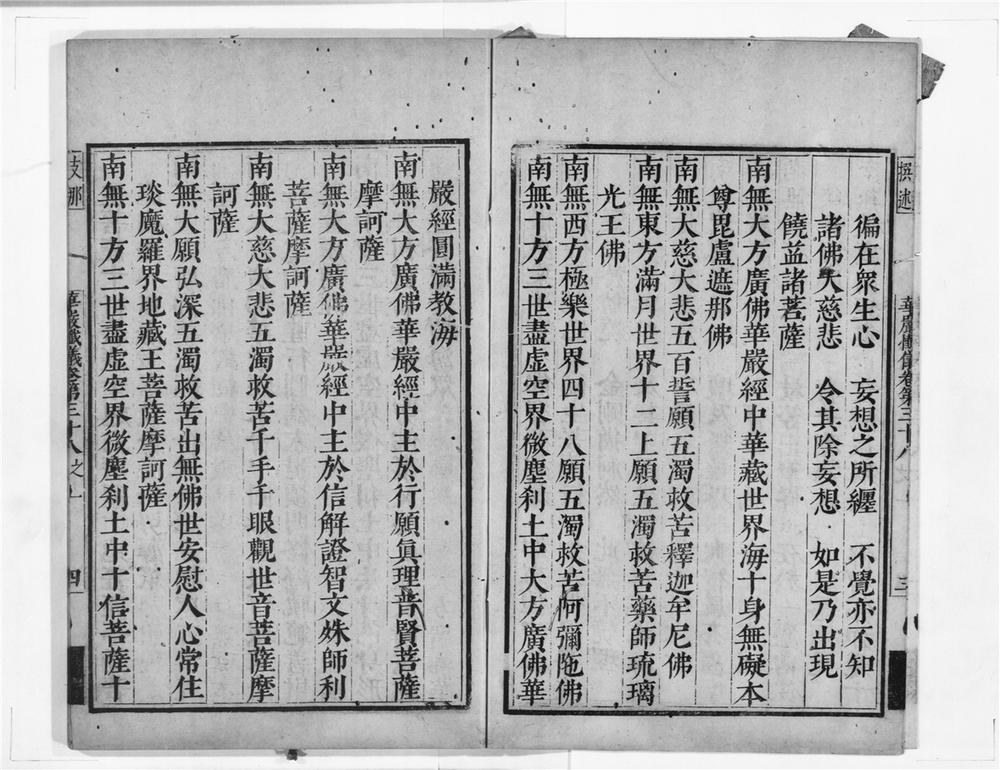 撰述
華嚴懺儀卷第三十八之十
三
徧在衆生心 妄想之所纏 不覺亦不知
諸佛大慈悲 令其除妄想 如是乃出現
饒益諸菩薩
南無大方廣佛華嚴經中華藏世界海十身無礙本
尊毘盧遮那佛
南無大慈大悲五百誓願五濁救苦釋迦牟尼佛
南無東方滿月世界十二上願五濁救苦藥師琉璃
光王佛
南無西方極樂世界四十八願五濁救苦阿彌陁佛
南無十方三世盡虛空界微塵刹土中大方廣佛華
嚴經圓滿教海
南無大方廣佛華嚴經中主於行願眞理普賢菩薩
摩訶薩
南無大方廣佛華嚴經中主於信解證智文姝師利
菩薩摩訶薩
南無大慈大悲五濁救苦千手千眼觀世音菩薩摩
訶薩
南無大願弘深五濁救苦出無佛世安慰人心常住
琰魔羅界地藏王菩薩摩訶薩
南無十方三世盡虛空界微塵刹土中十信菩薩十
支那
華嚴懺儀卷第三十八之十
四